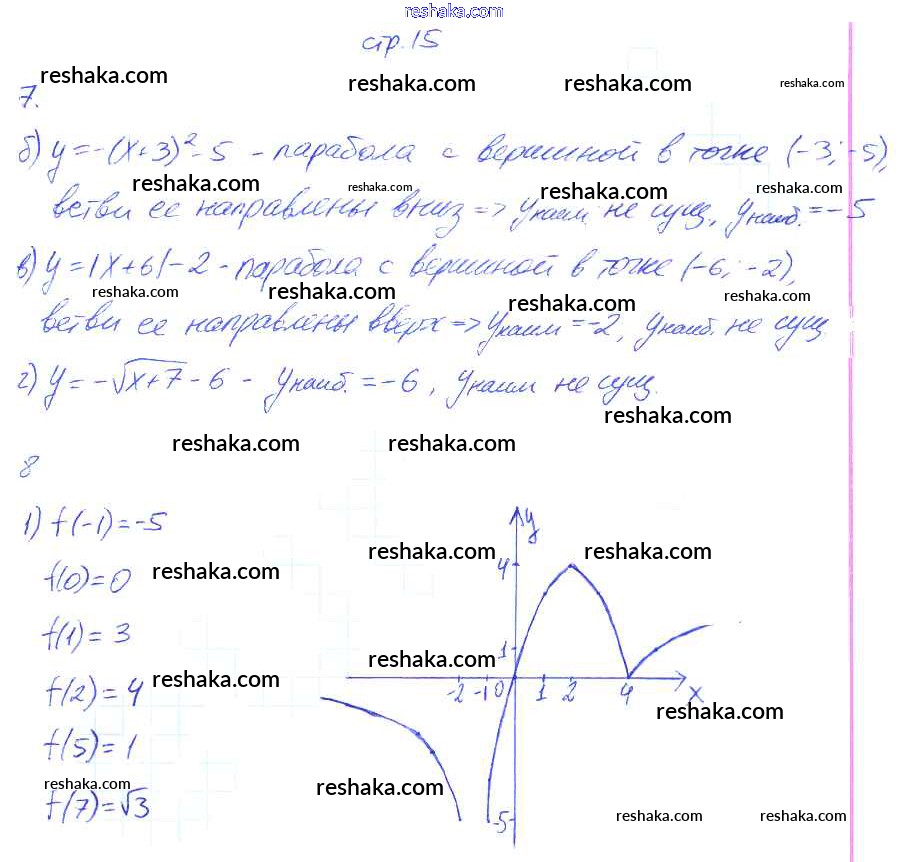 reshaka.com
стр. 15
reshaka.com reshaka.com reshaka.com reshaka.com
7.
б) y = -(x+3)² - 5 - парабола с вершиной в точке (-3; -5),
reshaka.com reshaka.com reshaka.com reshaka.com
ветви ее направлены вниз => yнаим. не сущ, yнаиб. = -5
в) y = |x+6| - 2 - парабола с вершиной в точке (-6; -2),
reshaka.com reshaka.com reshaka.com reshaka.com
ветви ее направлены вверх => yнаим = -2, yнаиб. не сущ
г) y = -√x+7 - 6 - yнаиб. = -6, yнаим не сущ.
reshaka.com
reshaka.com reshaka.com
8
1) f(-1) = -5
y
reshaka.com reshaka.com
4
f(0) = 0 reshaka.com
f(1) = 3
1
reshaka.com
f(2) = 4 reshaka.com
-2 -1 0 1 2 4 x
reshaka.com
f(5) = 1
reshaka.com reshaka.com
f(7) = √3
-5
reshaka.com reshaka.com